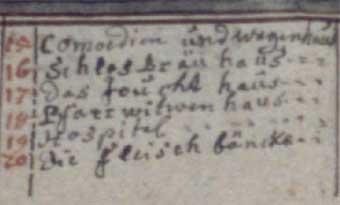 15 Comoedien und wagenhaus
16 Schlos Bräu haus - - -
17 das foucht haus - - -
18 Pfarr witwen haus - - -
19 Hospital - - - - -
20 die fleisch bäncke - -